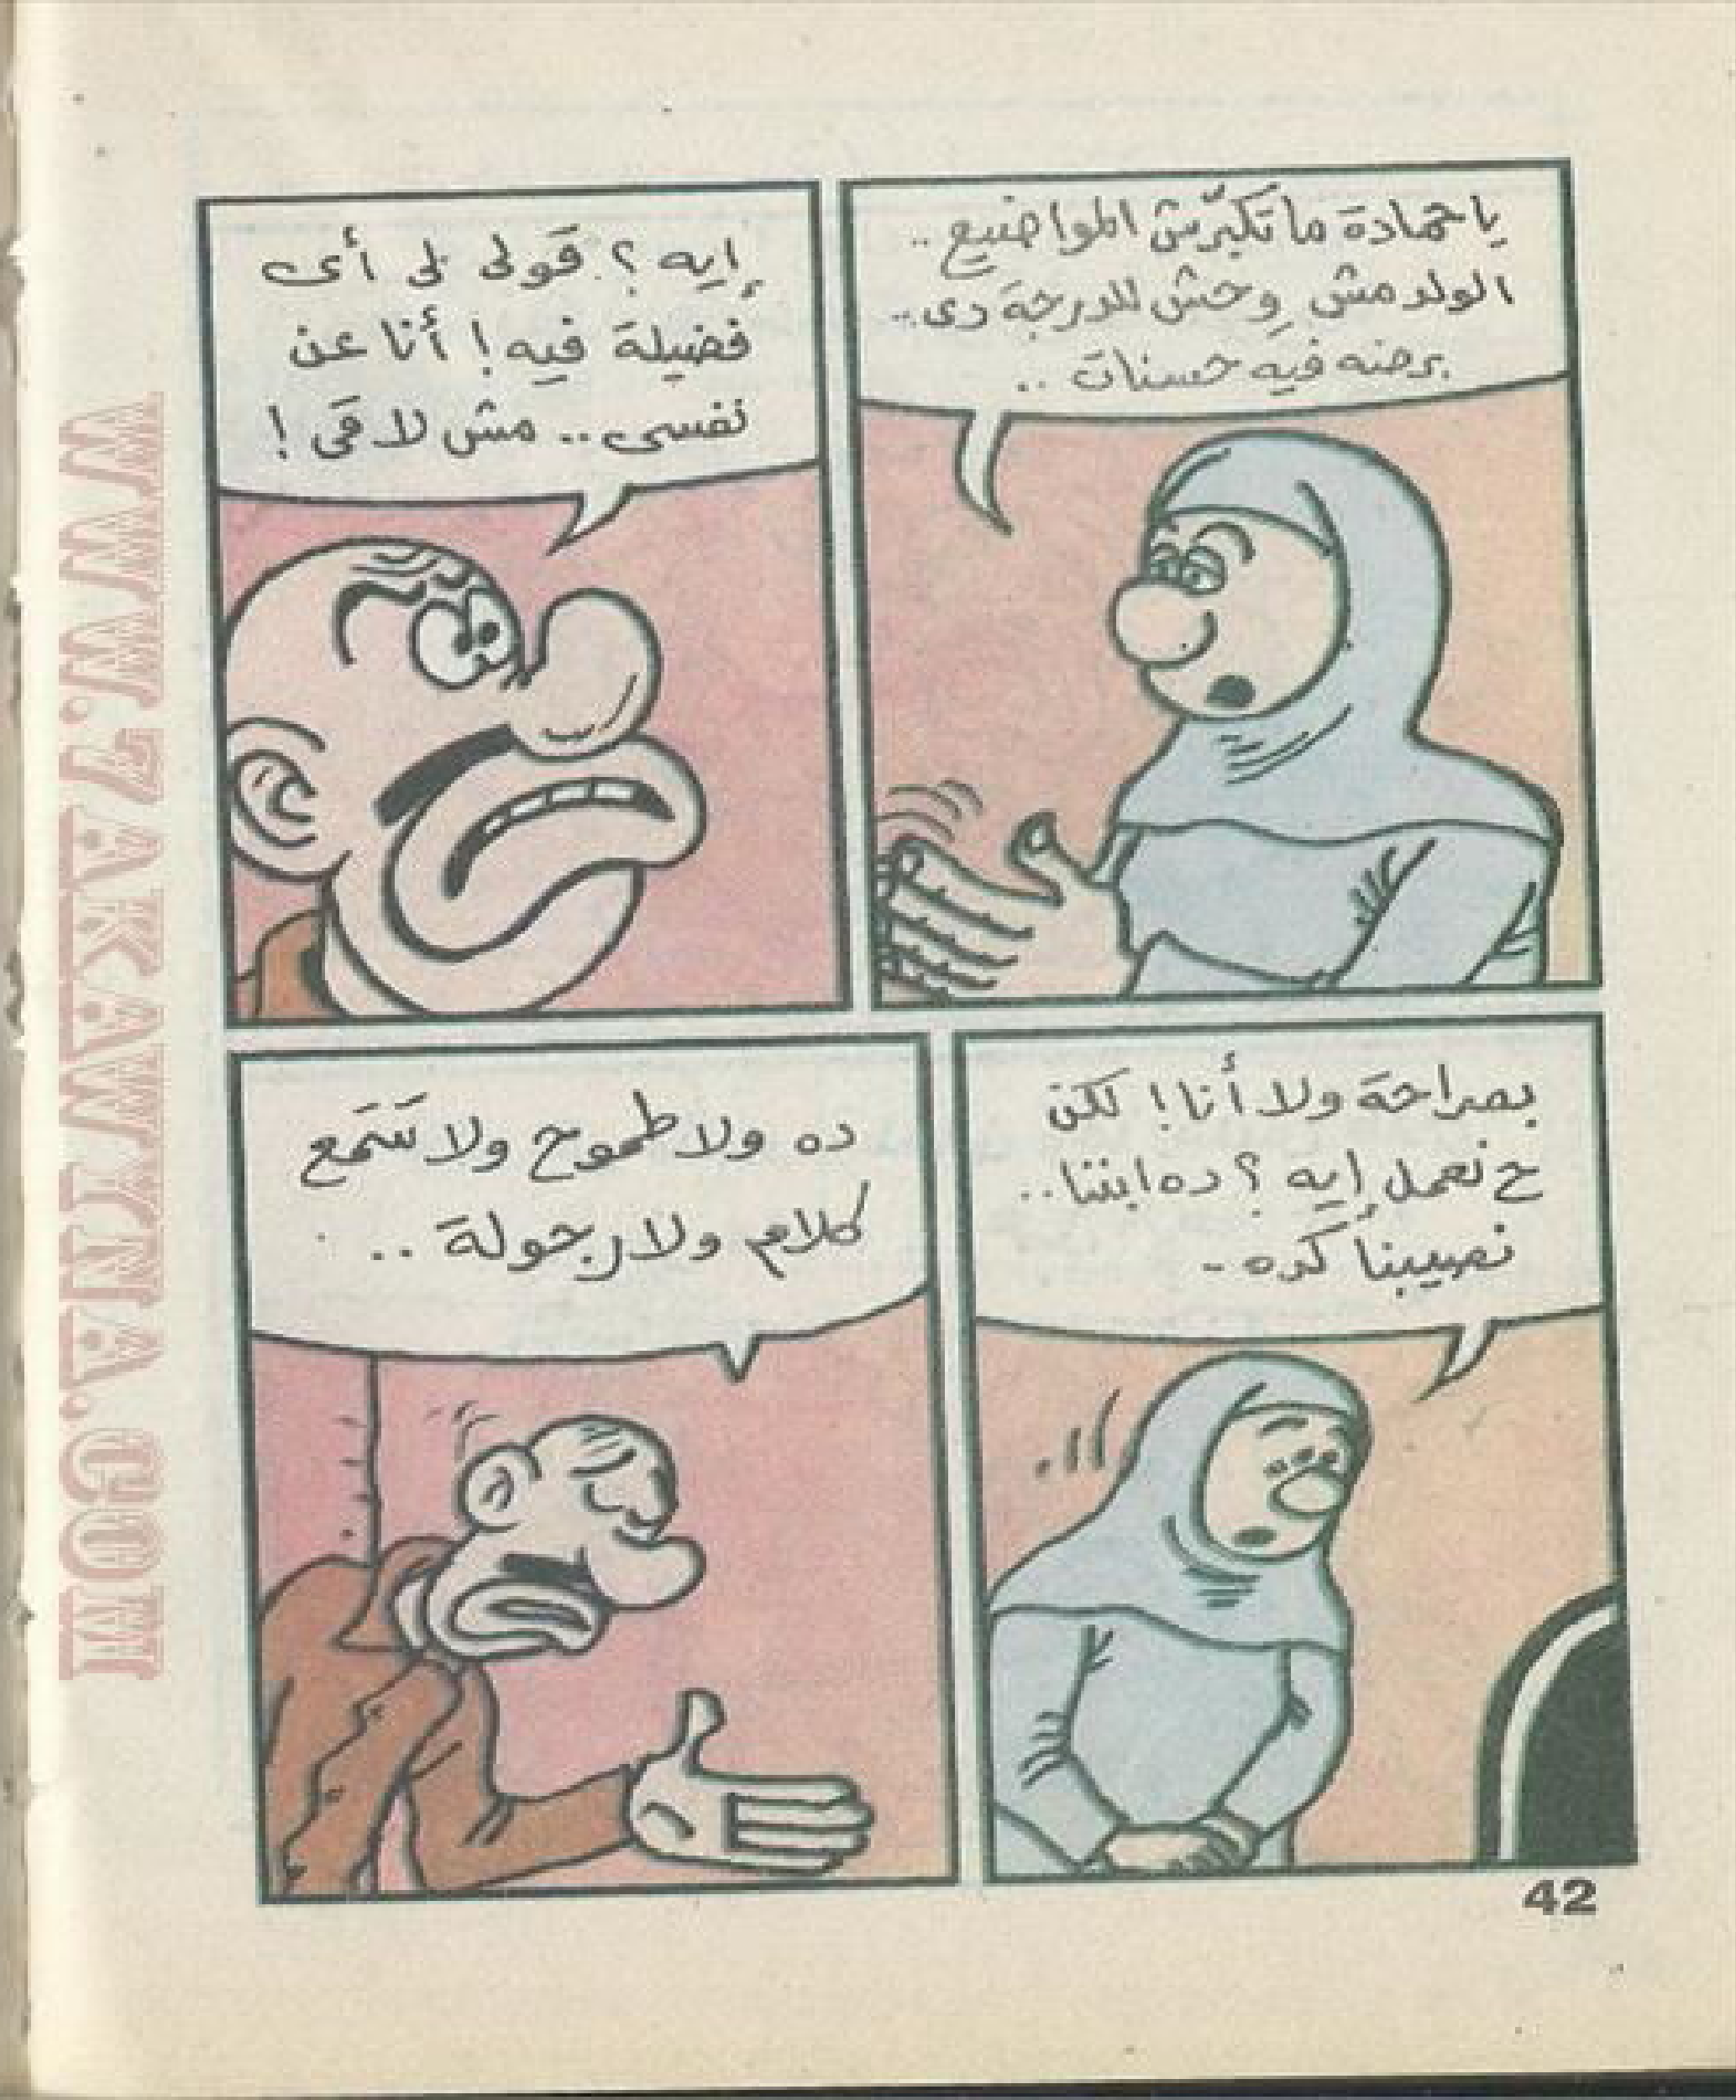 يا حمادة ما تكبّرش المواضيع..
الولد مش وحش للدرجة دى..
برضه فيه حسنات ..
إيه؟ قولى لى أى
فضيلة فيه! أنا عن
نفسى.. مش لاقى!
بصراحة ولا أنا! لكن
ح نعمل إيه؟ ده ابننا..
نصيبنا كده -
ده ولا طموح ولا سَمَع
كلام ولا رجولة ..
42
WWW.7AKAWITNA.COM